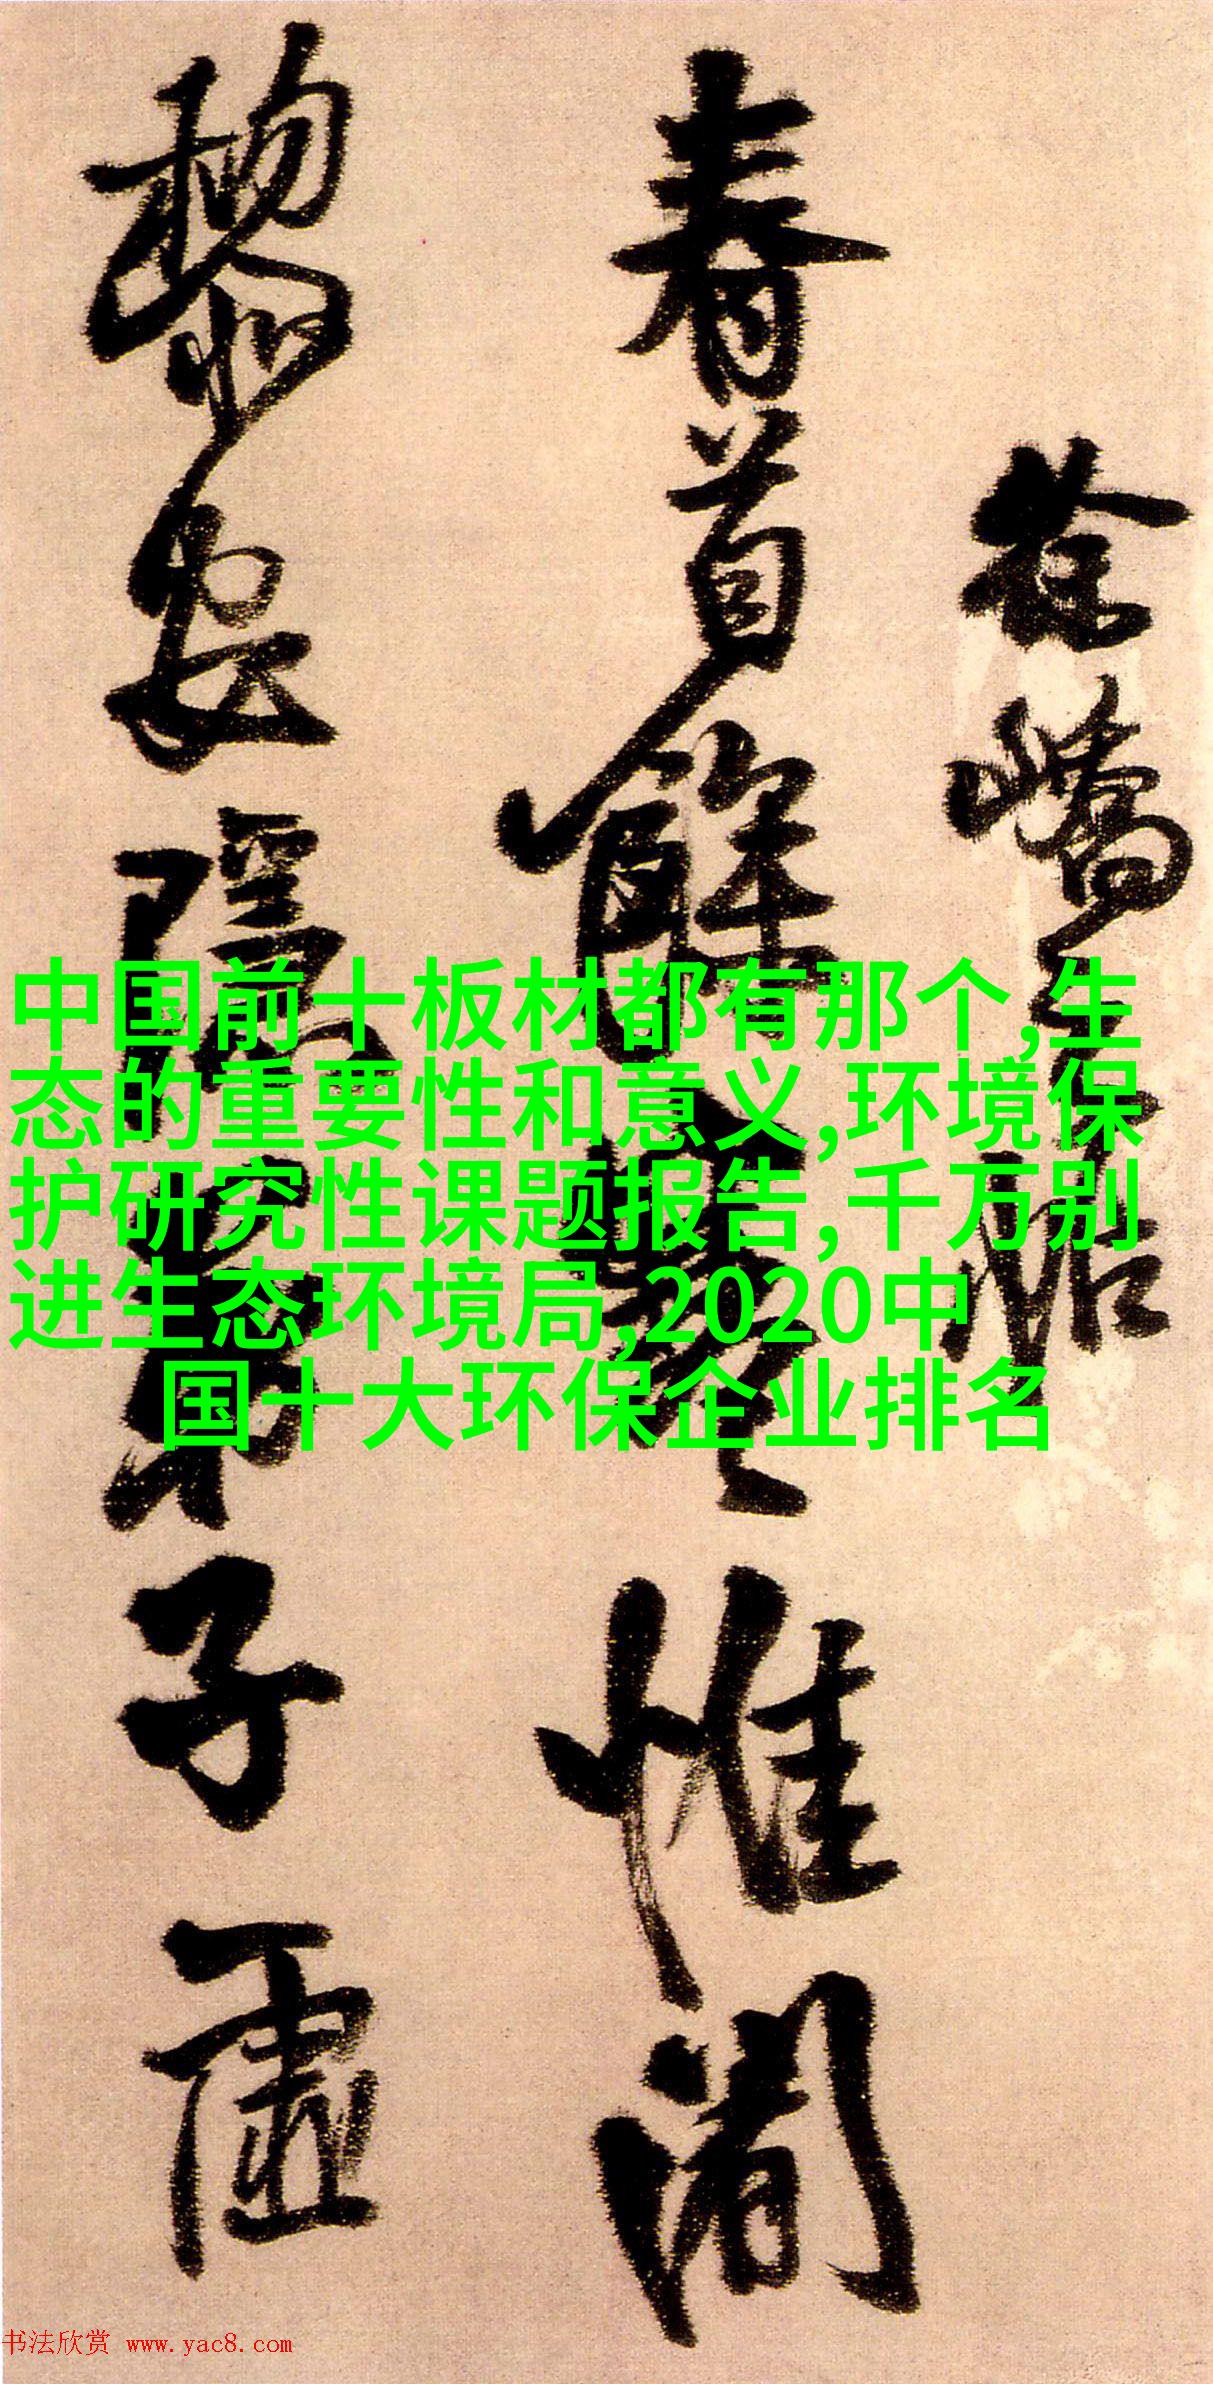 徐嶠之帖
春首餘寒惟闍
黎安隱弟子虛
中国前十板材都有那个,生
态的重要性和意义,环境保
护研究性课题报告,千万别
进生态环境局,2020中
国十大环保企业排名
书法欣赏 www.yac8.com